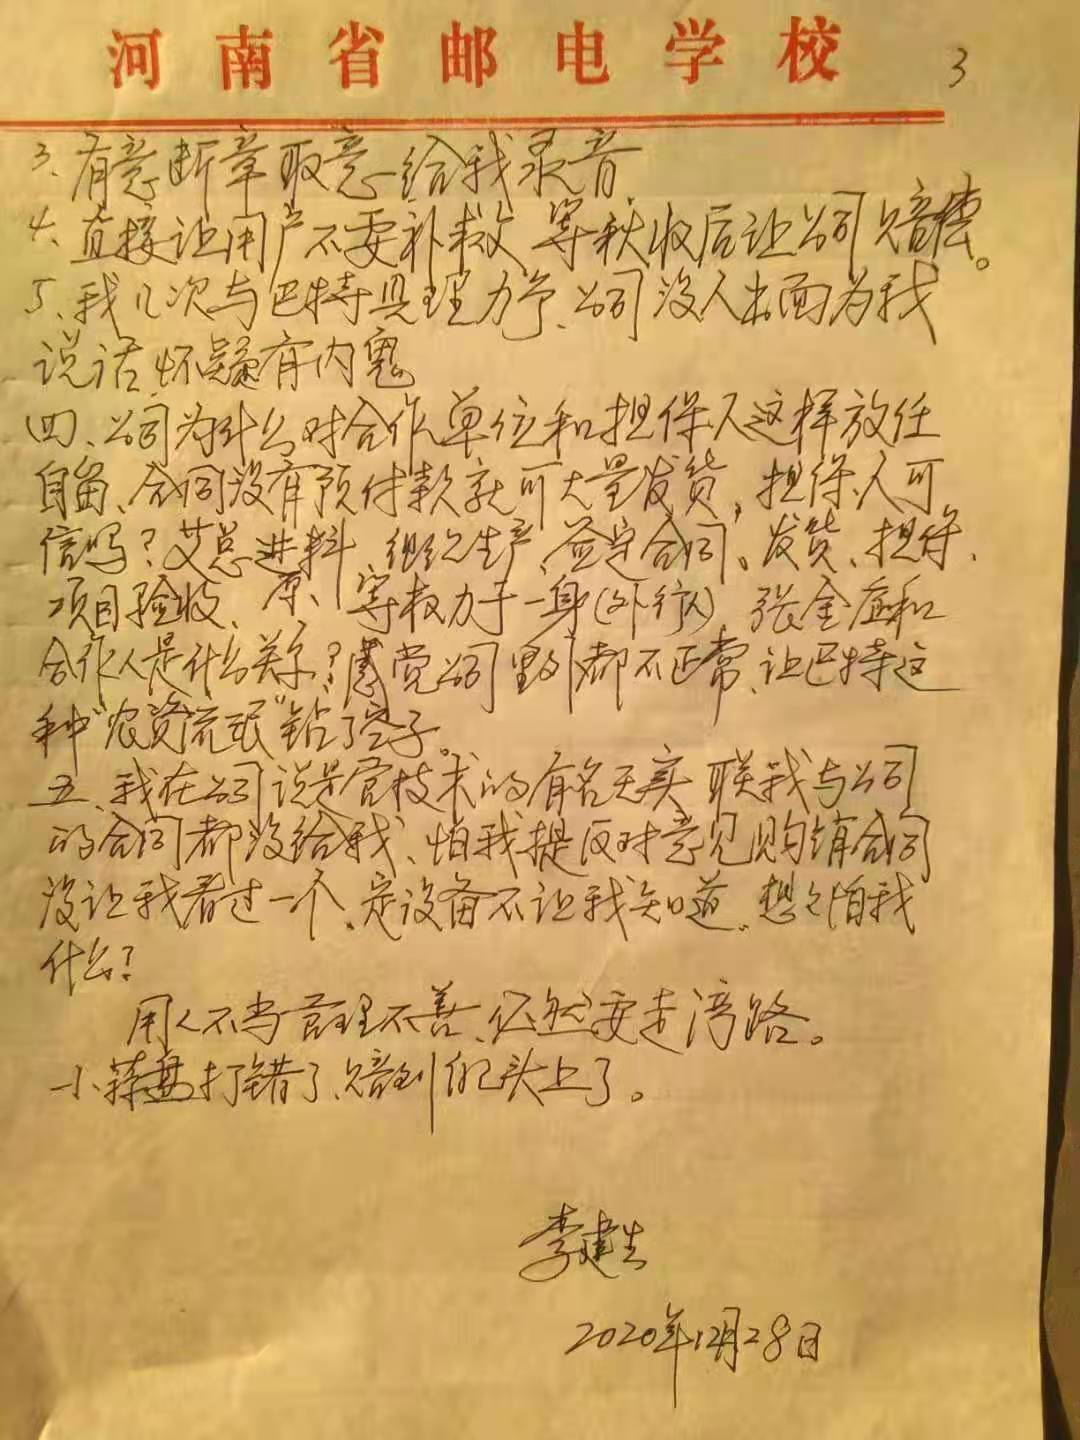 河南省邮电学校
3
3、有意断章取意给我录音
4、直接让用户不要补救 等秋收后让公司赔偿。
5、我几次与巴特具理力争、公司没人出面为我
说话 怀疑有内鬼
四、公司为什么对合作单位和担保人这样放任
自留、合同没有预付款就可大量发货,担保人可
信吗?艾总进料 组织生产 签定合同。发货、担保、
项目验收、 等权力于一身(外行人) 张金
合作人是什么关系?感觉公司里外都不正常、让巴特这
种“农资流氓”钻了空子。
五、我在公司说是管技术的有名无实 联我与公司
的合同都没给我、怕我提反对意见 购销合同
没让我看过一个、定设备不让我知道、想之怕我
什么?
用人不当管理不善、必然要走湾路。
小算盘打错了、赔到 头上了。
李建生
2020年12月28日